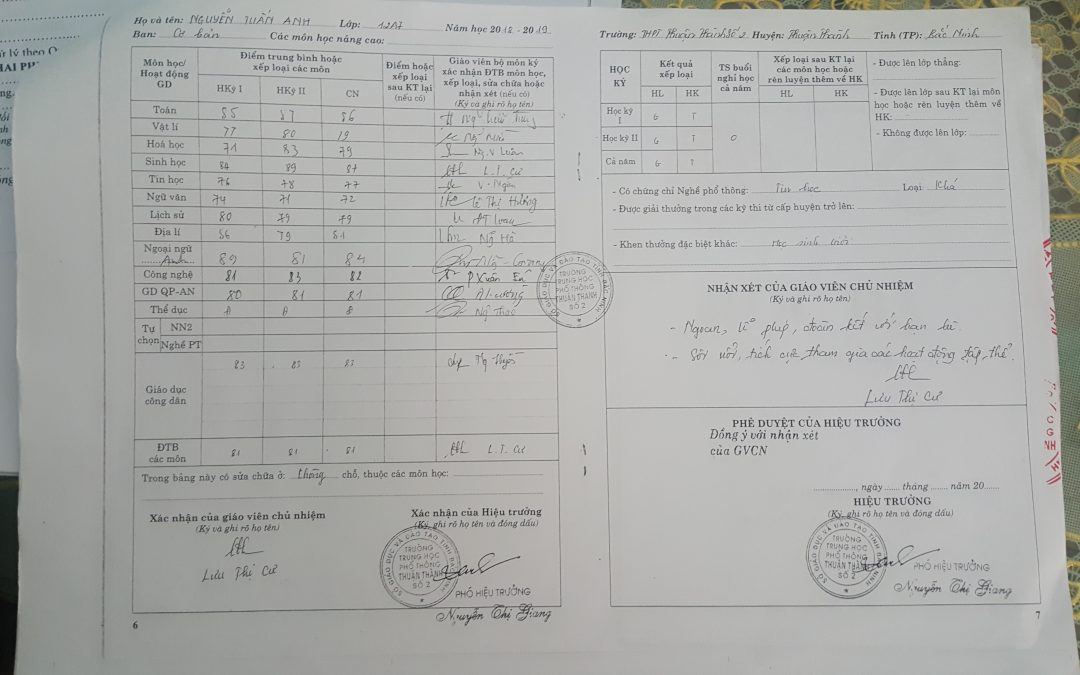 Họ và tên: NGUYỄN TUẤN ANH Lớp: 12A7 Năm học 2018 - 2019
Ban: Cơ bản Các môn học nâng cao:
Môn học/ Hoạt động GD
Điểm trung bình hoặc xếp loại các môn
HKỳ I HKỳ II CN
Điểm hoặc xếp loại sau KT lại (nếu có)
Giáo viên bộ môn ký xác nhận ĐTB môn học, xếp loại, sửa chữa hoặc nhận xét (nếu có)
(Ký và ghi rõ họ tên)
Toán 85 87 86
Vật lí 77 80 79
Hoá học 71 83 79
Sinh học 84 89 87 L.T. Cư
Tin học 76 78 77 V. Ngân
Ngữ văn 74 71 72 Lê Thị Hường
Lịch sử 80 79 79
Địa lí 86 79 81 Ng Hà
Ngoại ngữ
Anh 89 81 84
Công nghệ 81 83 82
GD QP-AN 80 81 81
Thể dục Đ Đ Đ Ng Thao
Tự chọn
NN2
Nghề PT
Giáo dục công dân 83 83 83
ĐTB các môn 81 81 81 L.T. Cư
Trong bảng này có sửa chữa ở: không chỗ, thuộc các môn học:
Xác nhận của giáo viên chủ nhiệm
(Ký và ghi rõ họ tên)
Lưu Thị Cư
Xác nhận của Hiệu trưởng
(Ký, ghi rõ họ tên và đóng dấu)
SỞ GIÁO DỤC VÀ ĐÀO TẠO TỈNH BẮC NINH
TRƯỜNG
TRUNG HỌC
PHỔ THÔNG
THUẬN THÀNH
SỐ 2
PHÓ HIỆU TRƯỞNG
Nguyễn Thị Giang
6
Trường: THPT Thuận Thành Số 2 Huyện: Thuận Thành Tỉnh (TP): Bắc Ninh
HỌC KỲ
Kết quả xếp loại
HL HK
TS buổi nghỉ học cả năm
Xếp loại sau KT lại các môn học hoặc rèn luyện thêm về HK
HL HK
Học kỳ I G T
Học kỳ II G T 0
Cả năm G T
- Được lên lớp thẳng:
- Được lên lớp sau KT lại môn
học hoặc rèn luyện thêm về
HK:
- Không được lên lớp:
- Có chứng chỉ Nghề phổ thông: Tin học Loại: Khá
- Được giải thưởng trong các kỳ thi từ cấp huyện trở lên:
- Khen thưởng đặc biệt khác: Học sinh giỏi
SỞ GIÁO DỤC VÀ ĐÀO TẠO TỈNH BẮC NINH
TRƯỜNG
TRUNG HỌC
PHỔ THÔNG
THUẬN THÀNH
SỐ 2
NHẬN XÉT CỦA GIÁO VIÊN CHỦ NHIỆM
(Ký và ghi rõ họ tên)
- Ngoan, lễ phép, đoàn kết với bạn bè.
- Sôi nổi, tích cực tham gia các hoạt động tập thể.
Lưu Thị Cư
PHÊ DUYỆT CỦA HIỆU TRƯỞNG
Đồng ý với nhận xét
của GVCN
, ngày tháng năm 20
HIỆU TRƯỞNG
(Ký, ghi rõ họ tên và đóng dấu)
SỞ GIÁO DỤC VÀ ĐÀO TẠO TỈNH BẮC NINH
TRƯỜNG
TRUNG HỌC
PHỔ THÔNG
THUẬN THÀNH
SỐ 2
PHÓ HIỆU TRƯỞNG
Nguyễn Thị Giang
7